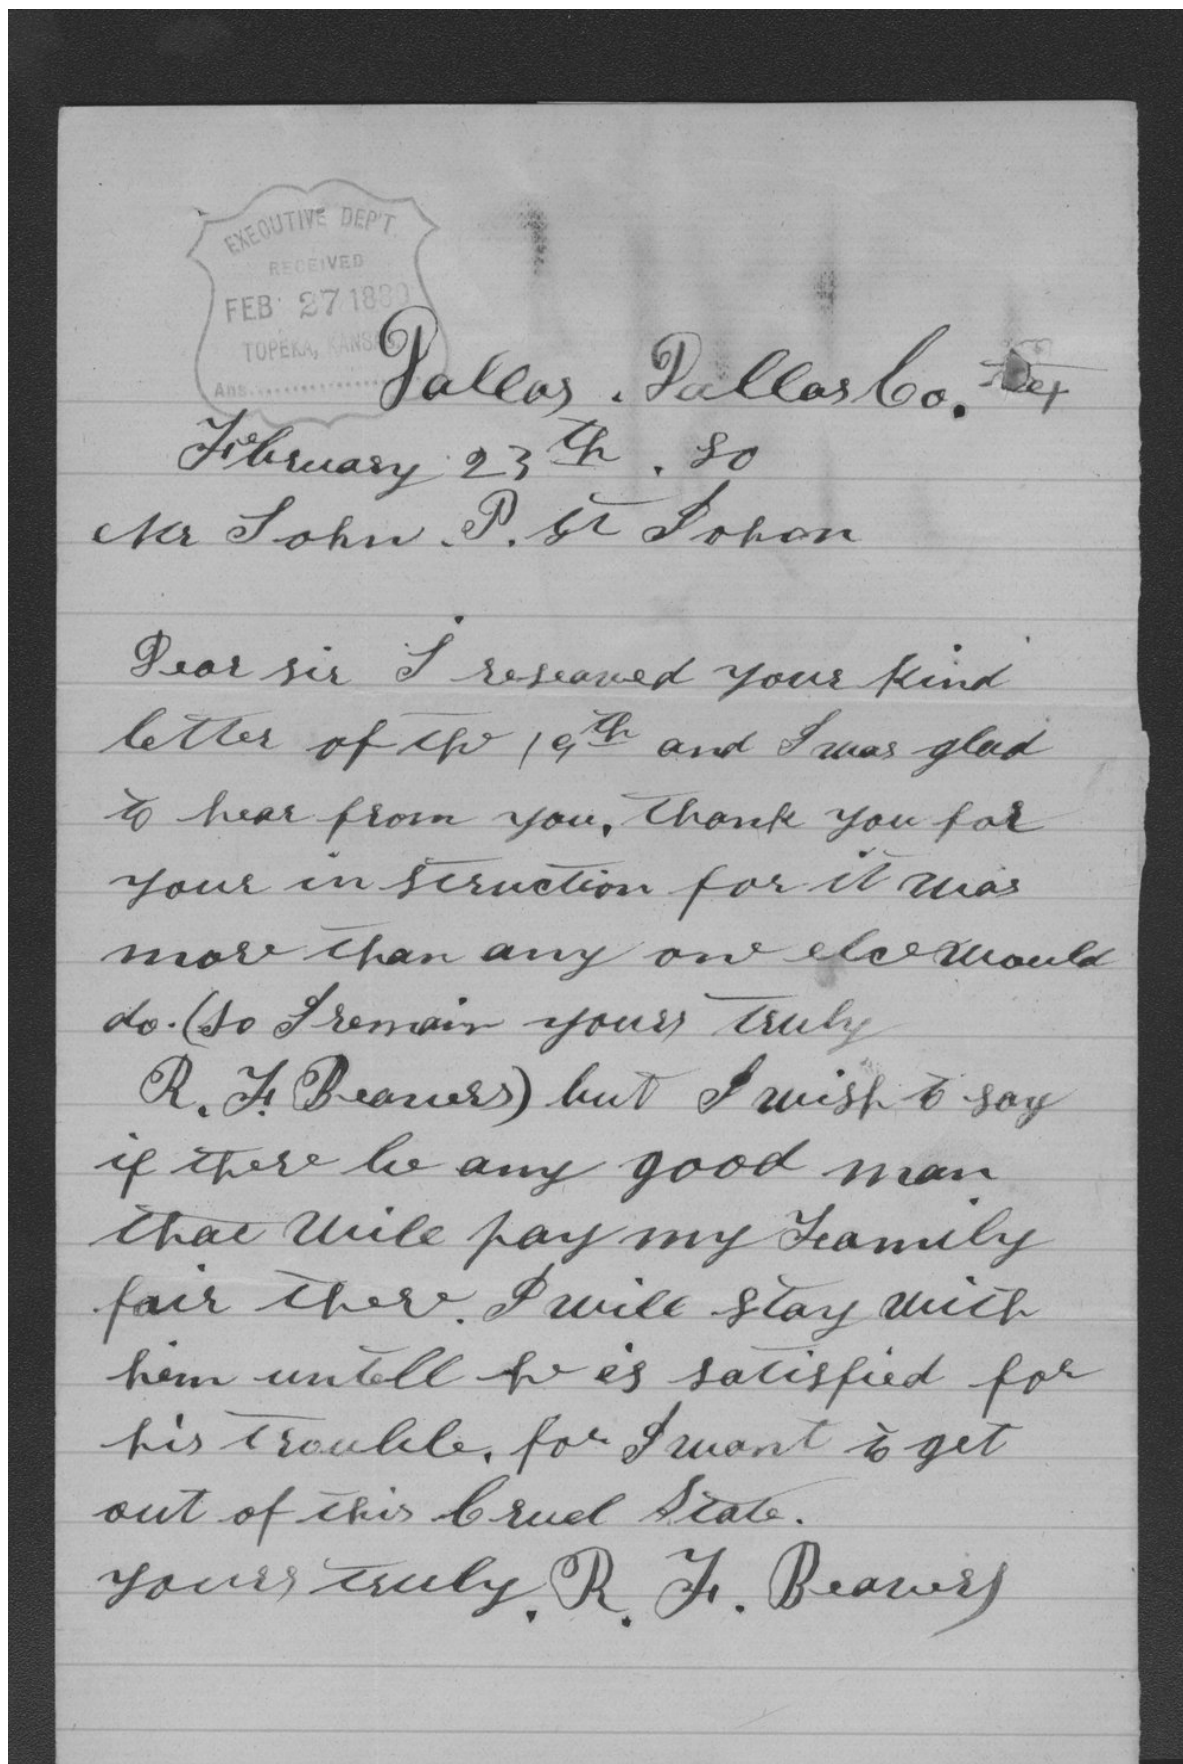 EXECUTIVE DEP'T.
RECEIVED
FEB 27 1880
TOPEKA, KANSAS.
Ans.
Dallas. Dallas Co. Tex
February 23th. 80
Mr John. P. St Johon
Dear sir I reseaved your kind
letter of the 19th and I was glad
to hear from you, thank you for
your in struction for it was
more than any one elce would
do. (so I remain yours truly
R. F. Beavers) but I wish to say
if there be any good man
that will pay my Family
fair there. I will stay with
him untell he is satisfied for
his trouble. for I want to get
out of this Cruel State.
yours truly. R. F. Beavers